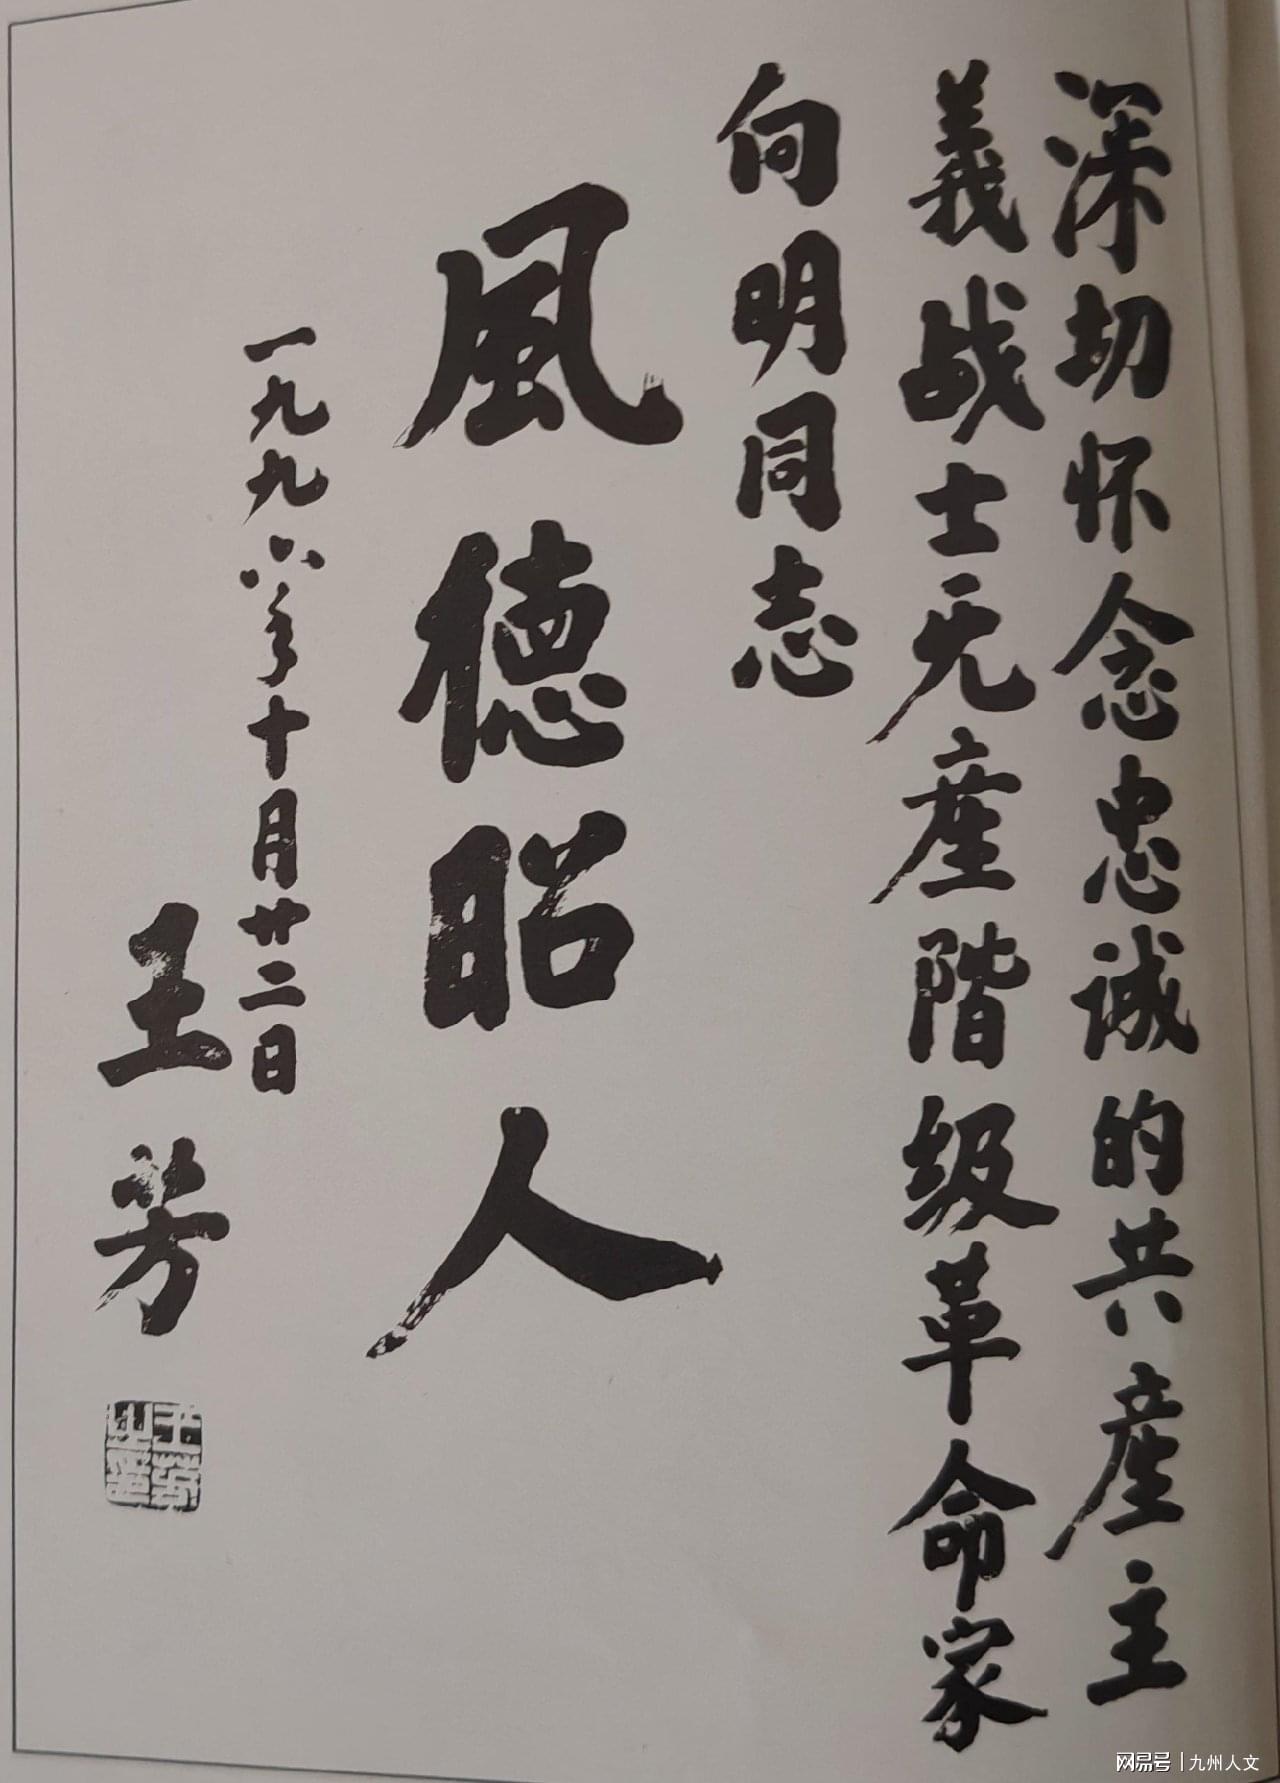 深切怀念忠诚的共産主
義战士无産階级革命家
向明同志
風德昭人
一九九六年十月廿二日
王芳
王芳之印
网易号 | 九州人文